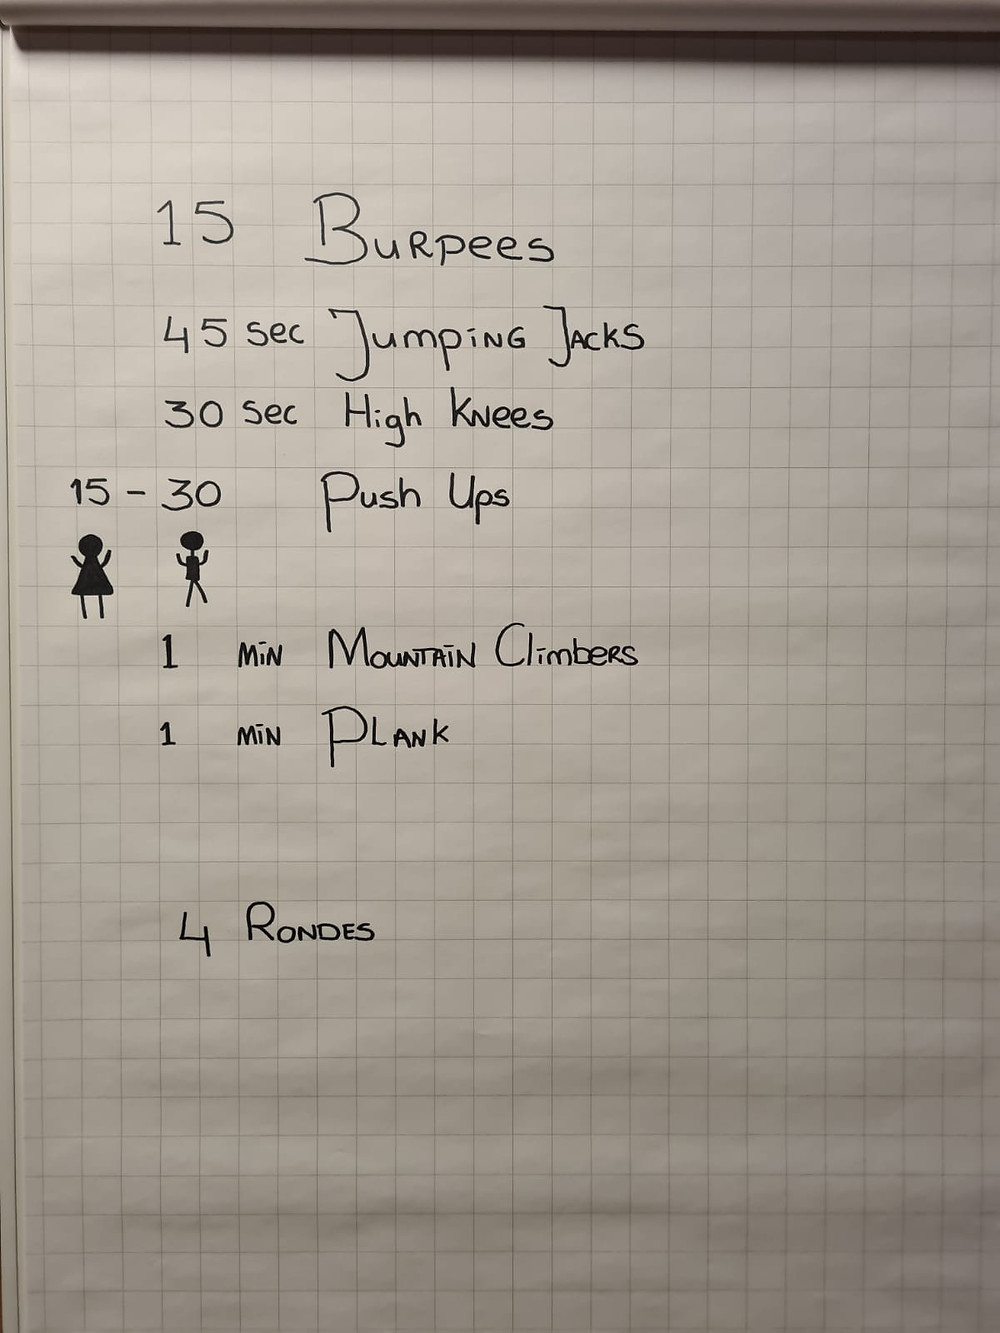 15 Burpees
45 sec Jumping Jacks
30 sec High Knees
15 - 30 Push Ups
1 min Mountain Climbers
1 min Plank
4 Rondes